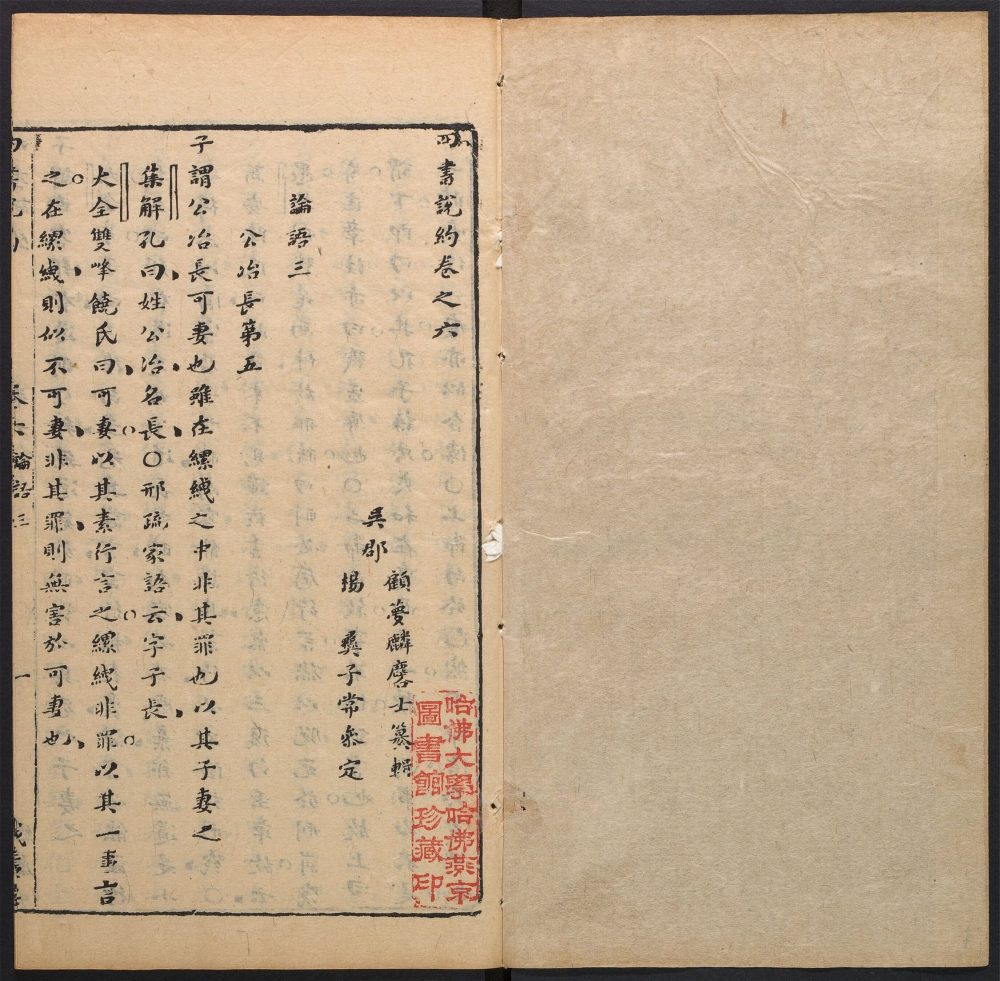 四書說約卷之六
吳郡
顧夢麟麐士纂輯
楊彝子常參定
論語三
公冶長第五
子謂公冶長可妻也雖在縲絏之中非其罪也以其子妻之
集解孔曰姓公冶名長〇邢疏家語云字子長
大全雙峰饒氏曰可妻以其素行言之縲絏非罪以其一事言
之在縲絏則似不可妻非其罪則無害於可妻也
卷六論語三
一
哈佛大學哈佛燕京
圖書館珍藏印